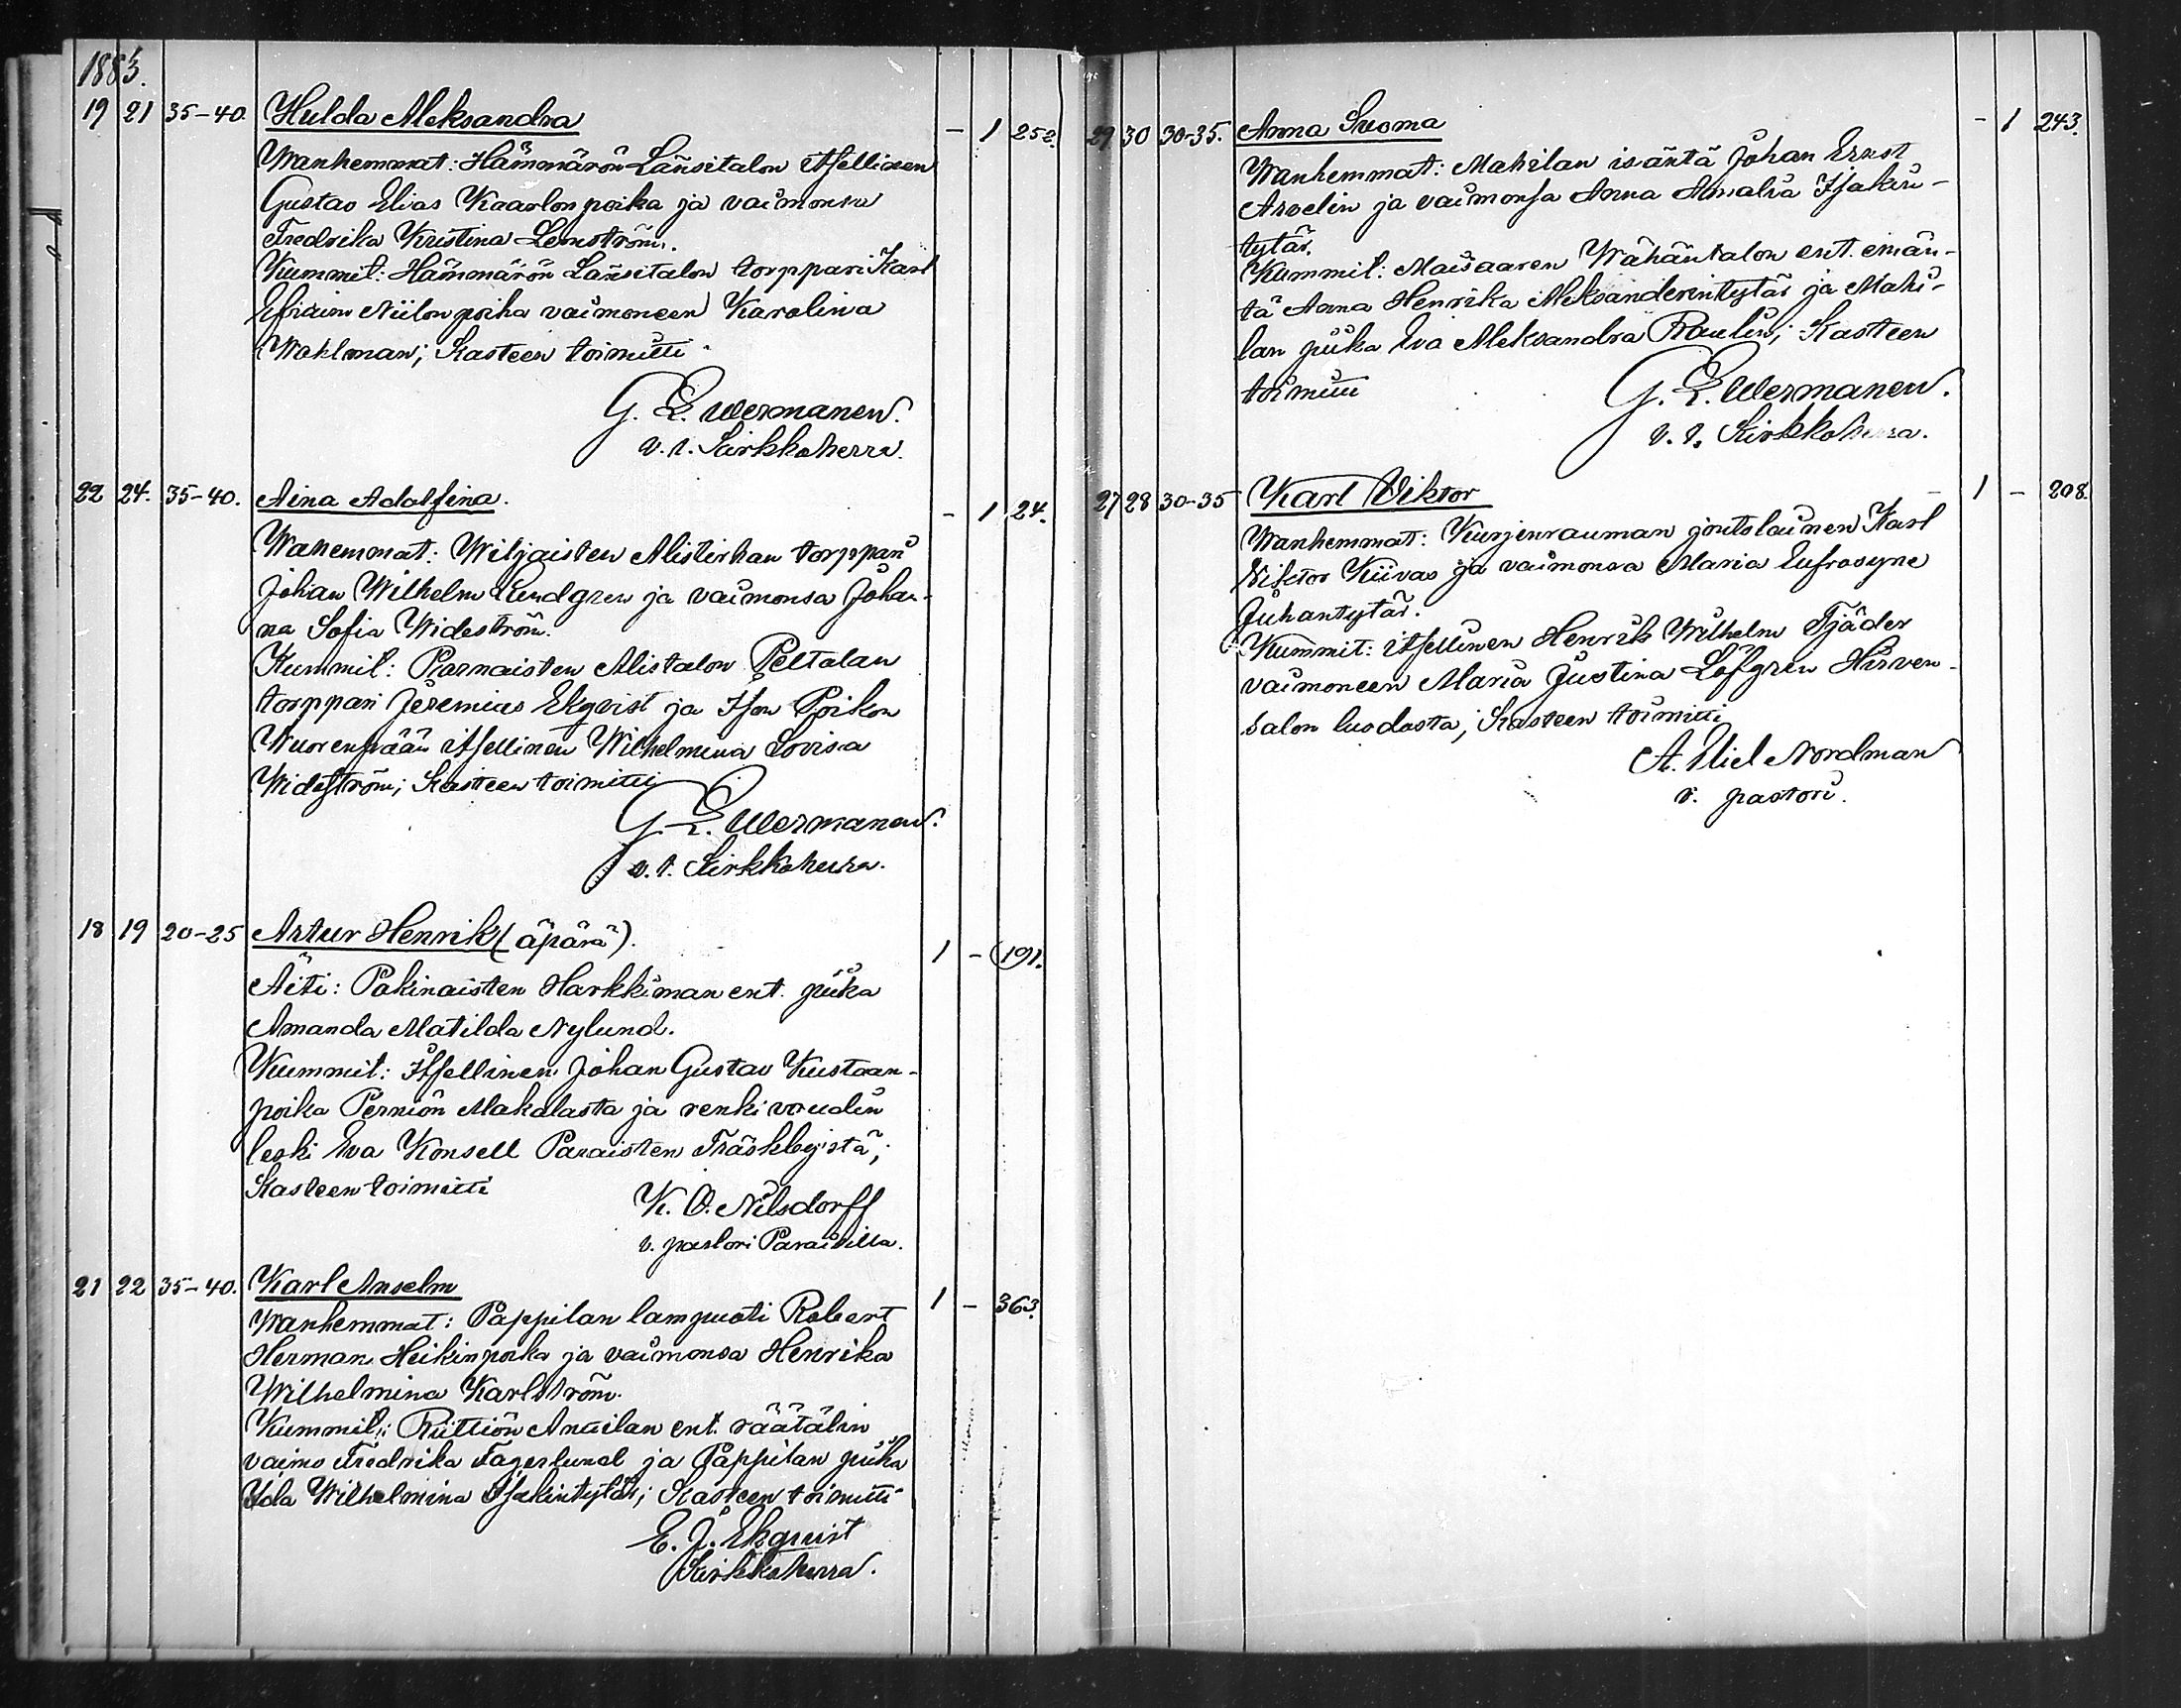 1883.
19 21 35-40. Hulda Aleksandra - 1 252.
Wanhemmat: Hämmärön Länsitalon itsellinen
Gustav Elias Kaarlonpoika ja vaimonsa
Fredrika Kristina Lemström.
Kummit: Hämmärön Länsitalon torppari Karl
Efraim Niilonpoika vaimoneen Karolina
Wahlman; Kasteen toimitti
G. L. Wermanen.
v. t. Kirkkoherra.
22 24. 35-40. Aina Adolfina. - 1 24.
Wanemmat: Wiljaisten Alistirhan torppari
Johan Wilhelm Lundgren ja vaimonsa Johan-
na Sofia Wideström.
Kummit: Parnaisten Alistalon Peltolan
torppari Jeremias Ekqvist ja Ison Poikon
Wuorenpään itsellinen Wilhelmina Lovisa
Wideström; Kasteen toimitti
G. L. Wermanen.
v. t. Kirkkoherra.
18 19 20-25 Artur Henrik (äpärä). 1 - (191.
Äiti: Pakinaisten Harkkiman ent. piika
Amanda Matilda Nylund.
Kummit: Itsellinen Johan Gustav Kustaan-
poika Perniön Makalasta ja renkivoudin
leski Eva Konsell Paraisten Träskbystä;
Kasteen toimitti
K. O. Nilsdorff
v. pastori Paraisilla.
21 22 35-40. Karl Anselm 1 - 363.
Wanhemmat: Pappilan lampuoti Robert
Herman Heikinpoika ja vaimonsa Henrika
Wilhelmina Karlström.
Kummit: Riittiön Anuilan ent. räätälin
vaimo Fredrika Fagerlund ja Pappilan piika
Ida Wilhelmina Isakintytär; Kasteen toimitti
E. J. Ekqvist
Kirkkoherra.
29 30 30-35. Anna Suoma - 1 243.
Wanhemmat: Mahilan isäntä Johan Ernst
Arvelin ja vaimonsa Anna Amalia Isakin-
tytär.
Kummit: Maisaaren Wähäntalon ent. emän-
tä Anna Henrika Aleksanderintytär ja Mahi-
lan piika Eva Aleksandra Raulin; Kasteen
toimitti
G. L. Wermanen.
v. t. Kirkkoherra.
27 28 30-35 Karl Viktor 1 - 208.
Wanhemmat: Kurjenrauman joutolainen Karl
Viktor Kiivas ja vaimonsa Maria Eufrosyne
Juhantytär.
Kummit: itsellinen Henrik Wilhelm Tjäder
vaimoneen Maria Justina Löfgren Hirven-
salon luodosta; Kasteen toimitti
A. Nordman
v. pastori.